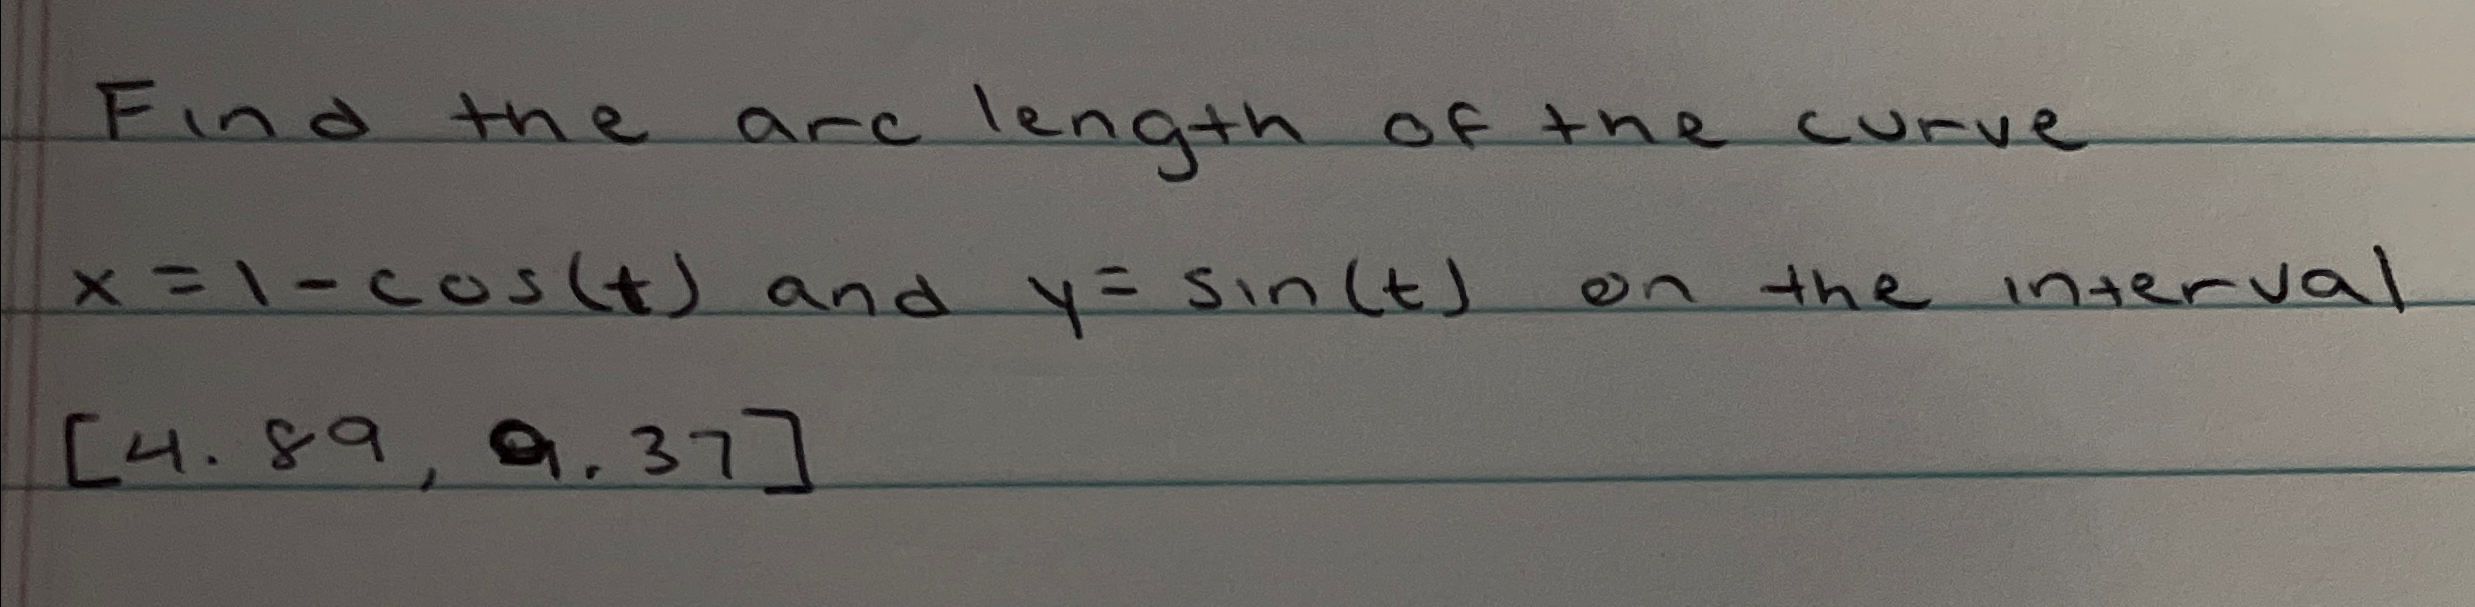 Find the arc length of the curve
x=1-cos(t) and y=sin(t) on the interval
[4.89, 9.37]